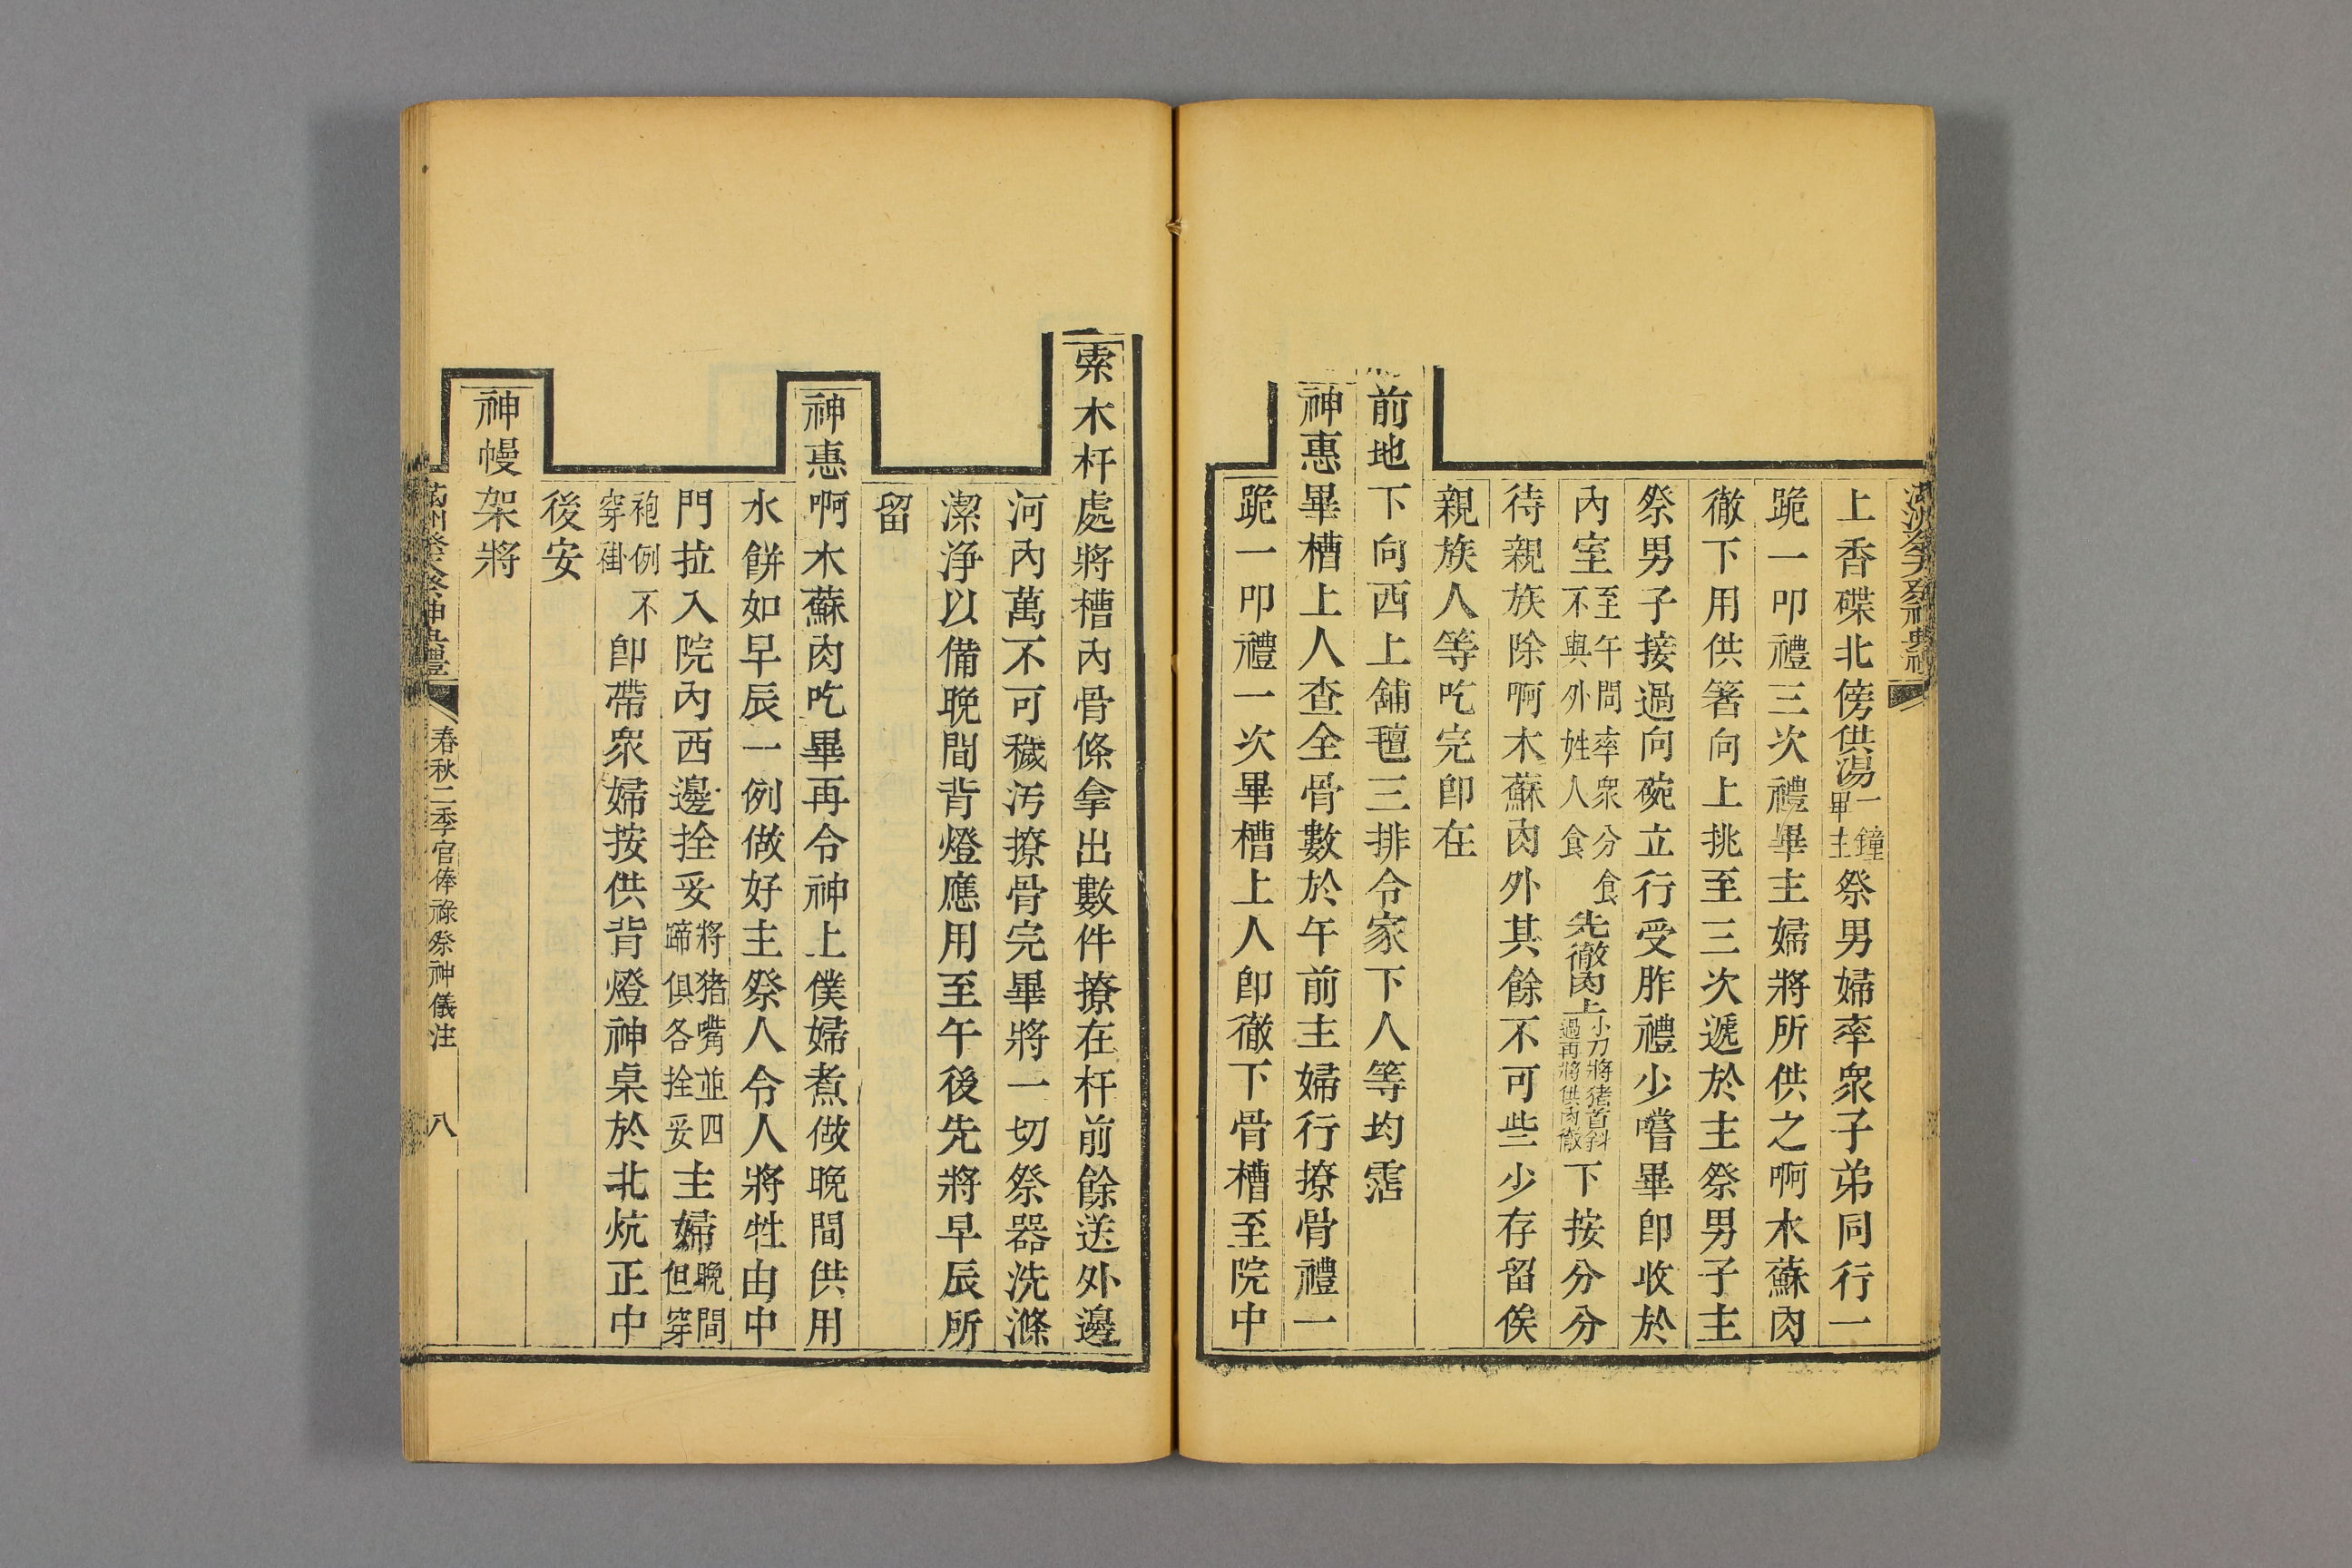 滿洲祭天祭神典禮
上香碟北傍供湯一鐘畢主祭男婦率衆子弟同行一
跪一叩禮三次禮畢主婦將所供之啊木蘇肉
徹下用供箸向上挑至三次遞於主祭男子主
祭男子接過向碗立行受胙禮少嚐畢卽收於
內室至午間率衆分食不與外姓人食先徹肉上小刀將猪首斜過再將供肉徹下按分分
待親族除啊木蘇肉外其餘不可些少存留俟
親族人等吃完卽在
前地下向西上鋪氊三排令家下人等均霑
神惠畢槽上人查全骨數於午前主婦行撩骨禮一
跪一叩禮一次畢槽上人卽徹下骨槽至院中
索木杆處將槽內骨條拿出數件撩在杆前餘送外邊
河內萬不可穢汚撩骨完畢將一切祭器洗滌
潔淨以備晚間背燈應用至午後先將早辰所
留
神惠啊木蘇肉吃畢再令神上僕婦煮做晚間供用
水餅如早辰一例做好主祭人令人將牲由中
門拉入院內西邊拴妥將猪嘴並四蹄俱各拴妥主婦晚間但穿
袍例不穿褂卽帶衆婦按供背燈神桌於北炕正中
後安
神幔架將
滿洲祭天祭神典禮 春秋二季官俸祿祭神儀注 八